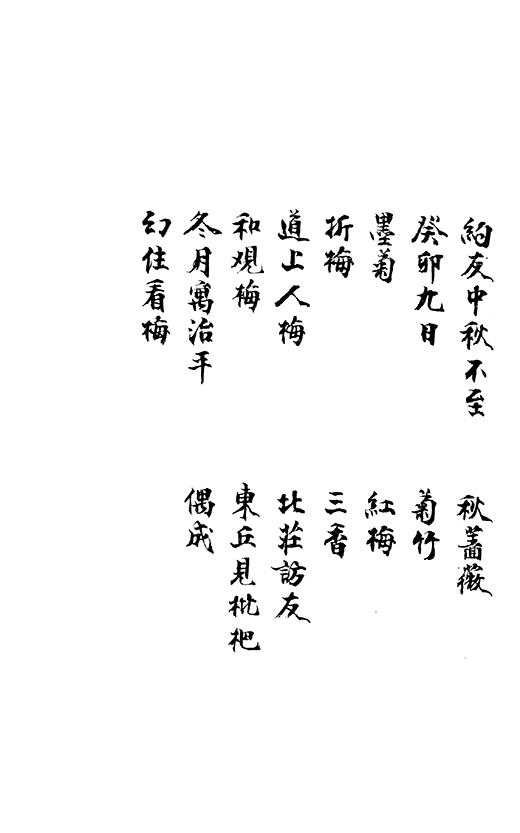 約友中秋不至
秋薔薇
癸卯九日
菊竹
墨菊
紅梅
折梅
三香
道上人梅
北莊訪友
和观梅
東丘見枇杷
冬月寓治平
偶成
幻住看梅